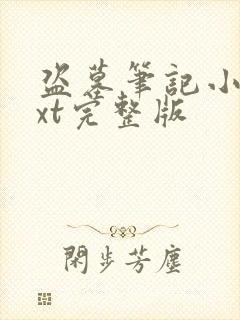 盗墓筆記小
xt完整版
閑步芳塵